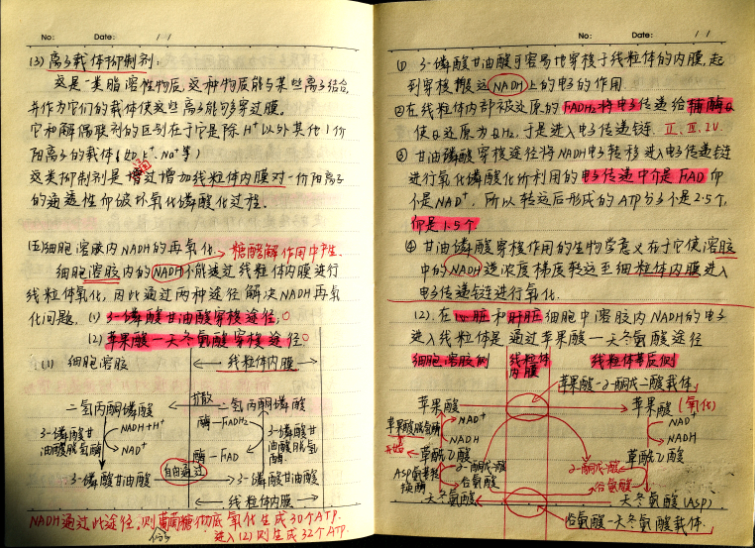 No: Date: / /
(3) 离子载体抑制剂.
这是一类脂溶性物质,这种物质能与某些离子结合,
并作为它们的载体使这些离子能够穿过膜.
它和解偶联剂的区别在于它是除H⁺以外其他1价
阳离子的载体(如K⁺.Na⁺等)
这类抑制剂是通过增加线粒体内膜对一价阳离子
的通透性而破坏氧化磷酸化过程.
细胞溶胶内NADH的再氧化. 糖酵解作用中产生.
细胞溶胶内的NADH不能透过线粒体内膜进行
线粒体氧化,因此通过两种途径解决NADH再氧
化问题. (1) 3-磷酸甘油酸穿梭途径.
(2) 苹果酸-天冬氨酸穿梭途径
(1) 细胞溶胶 线粒体内膜
二氢丙酮磷酸 扩散 二氢丙酮磷酸
NADH+H⁺ 酶-FADH₂
3-磷酸甘 3-磷酸甘
油酸脱氢酶 油酸脱氢
NAD⁺ 酶-FAD 酶
自由通过
3-磷酸甘油酸 3-磷酸甘油酸
线粒体内膜
NADH通过此途径,则葡萄糖彻底氧化生成30个ATP.
进入(2)则生成32个ATP.
No: Date: / /
① 3-磷酸甘油酸可容易地穿梭于线粒体的内膜,起
到穿梭搬运NADH上的电子的作用
②在线粒体内部被还原的FADH₂将电子传递给辅酶Q
使Q还原为QH₂.于是进入电子传递链. Ⅱ.Ⅲ.IV.
③ 甘油磷酸穿梭途径将NADH电子转移进入电子传递链
进行氧化磷酸化所利用的电子传递中介是FAD而
不是NAD⁺. 所以转运后形成的ATP分子不是2.5个,
而是1.5个
④ 甘油磷酸穿梭作用的生物学意义在于它使溶胶
中的NADH逆浓度梯度转运至细线粒体内膜进入
电子传递链进行氧化.
(2). 在心脏和肝脏细胞中溶胶内NADH的电子
进入线粒体是通过苹果酸-天冬氨酸途径
细胞溶胶侧 线粒体 线粒体基质侧
内膜
苹果酸-α-酮戊二酸载体.
苹果酸 苹果酸 (氧化)
NAD⁺ NAD⁺
苹果酸脱氢酶
NADH NADH
开始 草酰乙酸 草酰乙酸
α-酮戊二酸 α-酮戊二酸
ASP氨基转 谷氨酸 谷氨酸
移酶
天冬氨酸 天冬氨酸(ASP)
谷氨酸-天冬氨酸载体.